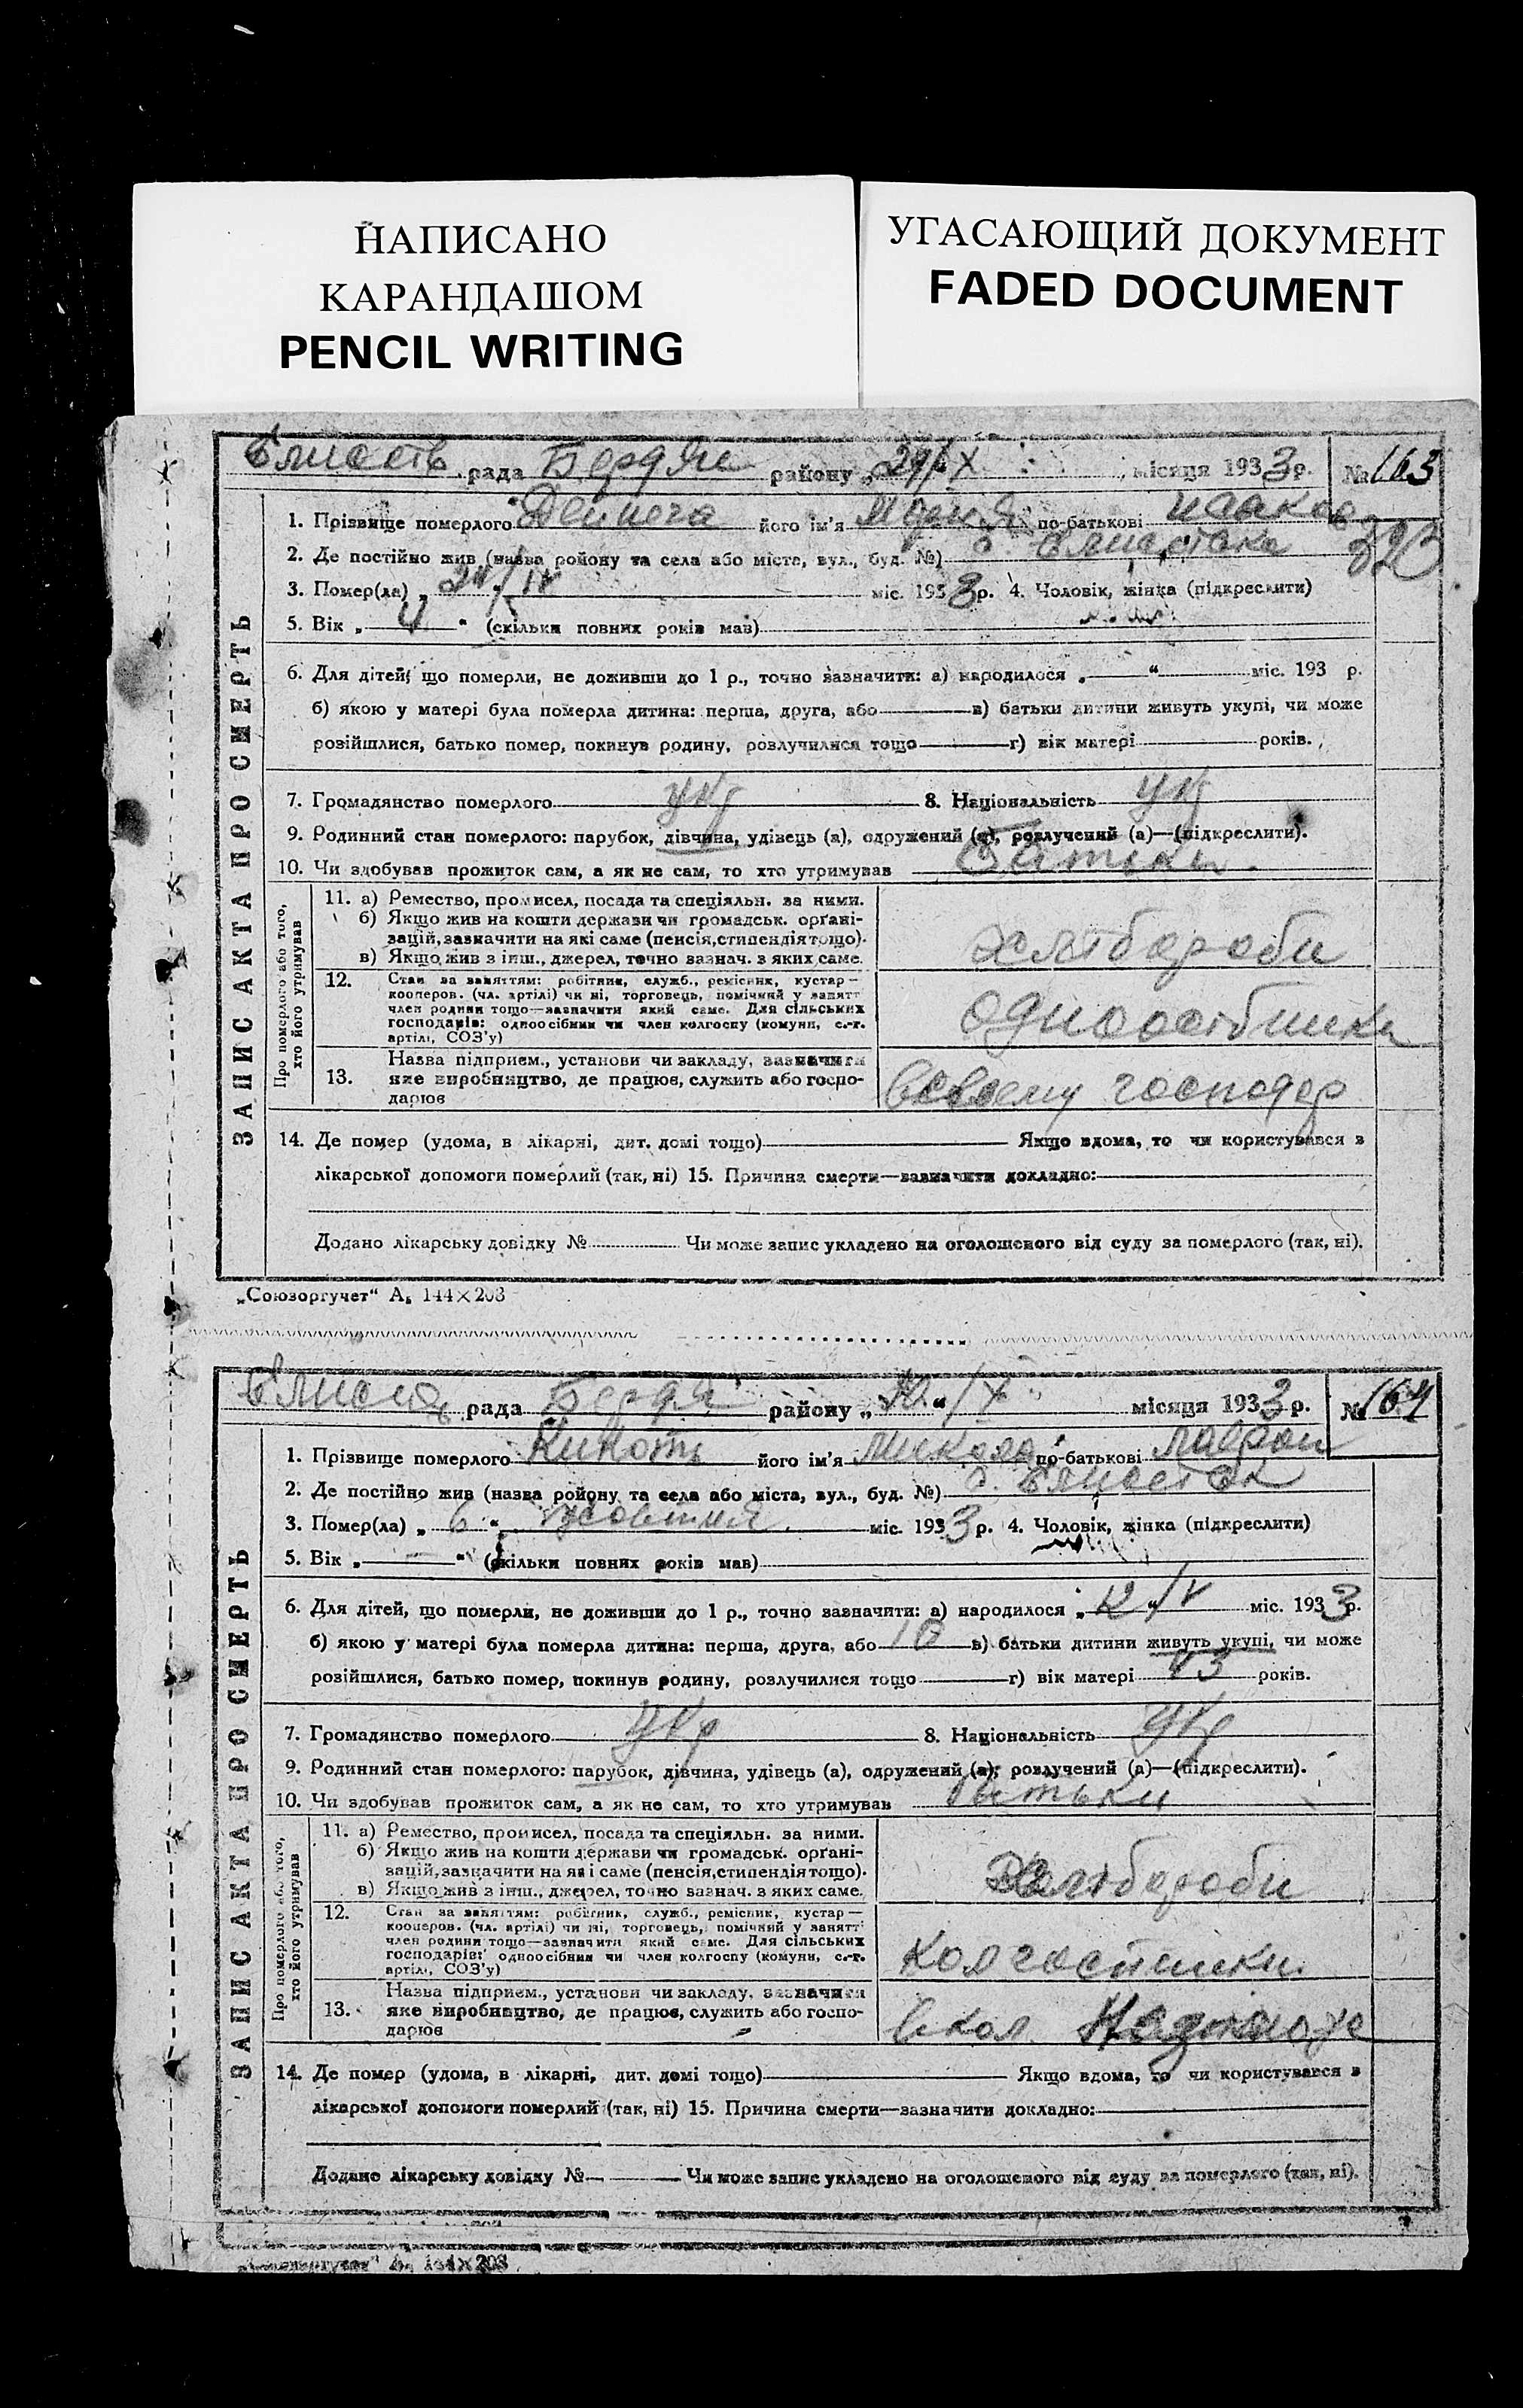 НАПИСАНО
КАРАНДАШОМ
PENCIL WRITING
УГАСАЮЩИЙ ДОКУМЕНТ
FADED DOCUMENT
рада Бердян району „29/X місяця 1933 р. № 163
1. Прізвище померлого його ім'я Марія по-батькові Исаков
323
2. Де постійно жив (назва району та села або міста, вул., буд. №) с.
3. Помер(ла) „ міс. 1933 р. 4. Чоловік, жінка (підкреслити)
5. Вік „ 4 “ (скільки повних років мав)
6. Для дітей, що померли, не доживши до 1 р., точно зазначити: а) народилося „ “ міс. 193 р.
б) якою у матері була померла дитина: перша, друга, або в) батьки дитини живуть укупі, чи може
розійшлися, батько помер, покинув родину, розлучилися тощо г) вік матері років.
7. Громадянство померлого укр 8. Національність укр
9. Родинний стан померлого: парубок, дівчина, удівець (а), одружений (а), розлучений (а)—(підкреслити).
10. Чи здобував прожиток сам, а як не сам, то хто утримував Батьки.
ЗАПИС АКТА ПРО СМЕРТЬ
Про померлого або того, хто його утримував
11. а) Ремество, промисел, посада та спеціяльн. за ними.
б) Якщо жив на кошти держави чи громадськ. орґані-
зацій, зазначити на які саме (пенсія, стипендія тощо).
в) Якщо жив з інш., джерел, точно зазнач. з яких саме.
хлібороби
12. Стан за заняттям: робітник, служб., ремісник, кустар—
кооперов. (чл. артілі) чи ні, торговець, помічний у занятт
член родини тощо—зазначити який саме. Для сільських
господарів: одноосібник чи член колгоспу (комуни, с.-г.
артілі, СОЗ'у)
одноосібники
13. Назва підприєм., установи чи закладу, зазначити
яке виробництво, де працює, служить або госпо-
дарює
всвоему господар
14. Де помер (удома, в лікарні, дит. домі тощо) Якщо вдома, то чи користувався з
лікарської допомоги померлий (так, ні) 15. Причина смерти—зазначити докладно:
Додано лікарську довідку № Чи може запис укладено на оголошеного від суду за померлого (так, ні).
„Союзоргучет“ А₅ 144×203
рада Бердя району „ “ /X місяця 1933 р. № 164
1. Прізвище померлого його ім'я Микола по-батькові Лаврон
2. Де постійно жив (назва району та села або міста, вул., буд. №) с.
3. Помер(ла) „ 6 “ жовтня міс. 1933 р. 4. Чоловік, жінка (підкреслити)
5. Вік „ — “ (скільки повних років мав)
6. Для дітей, що померли, не доживши до 1 р., точно зазначити: а) народилося „ 12 “/V міс. 1933 р.
б) якою у матері була померла дитина: перша, друга, або 10 в) батьки дитини живуть укупі, чи може
розійшлися, батько помер, покинув родину, розлучилися тощо г) вік матері 43 років.
7. Громадянство померлого укр 8. Національність укр
9. Родинний стан померлого: парубок, дівчина, удівець (а), одружений (а), розлучений (а)—(підкреслити).
10. Чи здобував прожиток сам, а як не сам, то хто утримував батьки
ЗАПИС АКТА ПРО СМЕРТЬ
Про померлого або того, хто його утримував
11. а) Ремество, промисел, посада та спеціяльн. за ними.
б) Якщо жив на кошти держави чи громадськ. орґані-
зацій, зазначити на які саме (пенсія, стипендія тощо).
в) Якщо жив з інш., джерел, точно зазнач. з яких саме.
хлібороби
12. Стан за заняттям: робітник, служб., ремісник, кустар—
кооперов. (чл. артілі) чи ні, торговець, помічний у занятт
член родини тощо—зазначити який саме. Для сільських
господарів: одноосібник чи член колгоспу (комуни, с.-г.
артілі, СОЗ'у)
колгоспники.
13. Назва підприєм., установи чи закладу, зазначити
яке виробництво, де працює, служить або госпо-
дарює
в кол.
14. Де помер (удома, в лікарні, дит. домі тощо) Якщо вдома, то чи користувався з
лікарської допомоги померлий (так, ні) 15. Причина смерти—зазначити докладно:
Додано лікарську довідку № Чи може запис укладено на оголошеного від суду за померлого (так, ні).
А₅ 144×203